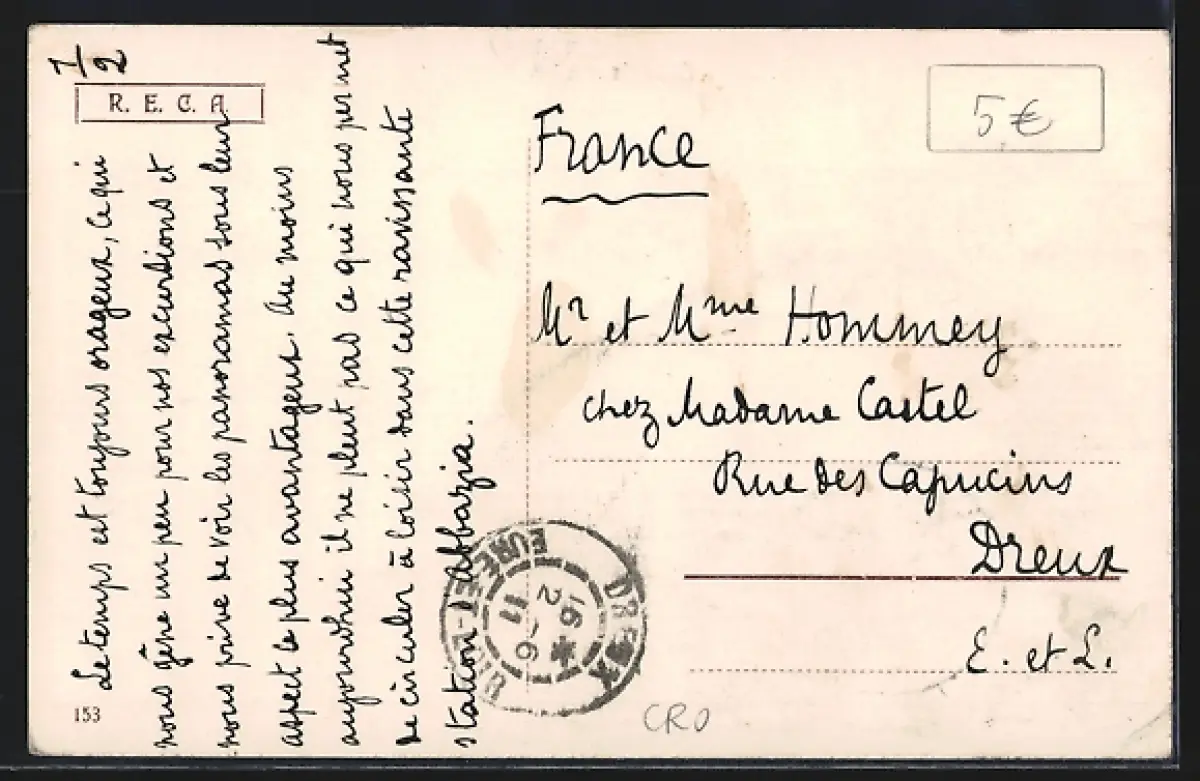 1/2
R. E. C. A.
Le temps est toujours orageux, ce qui
nous gêne un peu pour nos excursions et
nous prive de voir les panoramas sous leur
aspect le plus avantageux. Au moins
aujourdhui il ne pleut pas ce qui nous permet
de circuler à loisir dans cette ravissante
station d'Abbazia.
153
5 €
France
Mr et Mme Hommey
chez Madame Castel
Rue des Capucins
Dreux
E. et L.
DREUX
EURE-ET-LOIR
16 *
2 - 6
11
CRO